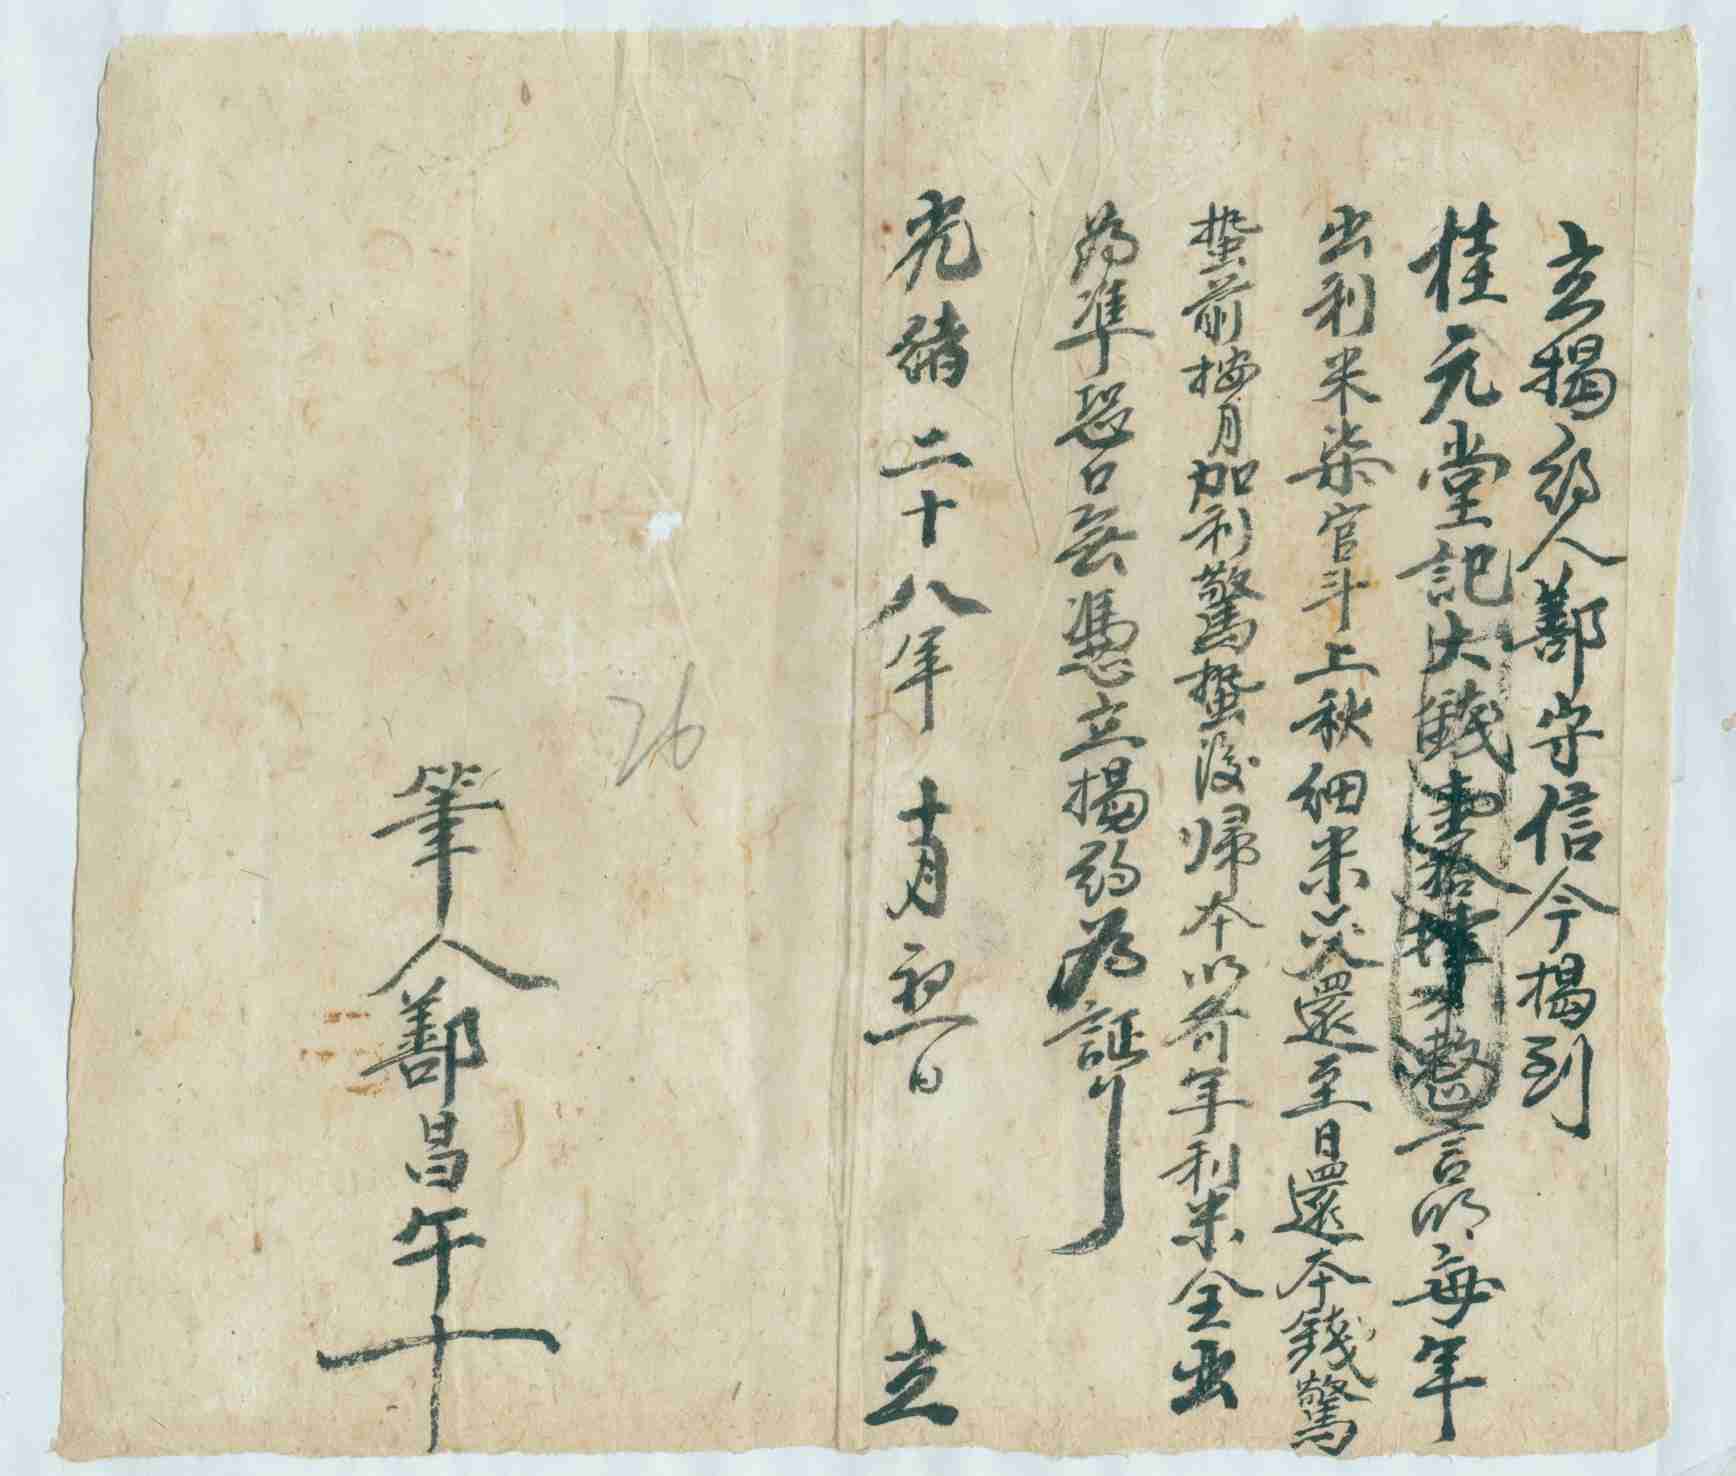 立揭約人鄯守信今揭到
桂元堂記大錢壹拾肆千整言明每年
出利米柒官斗上秋細米交還至日還本錢驚
蟄前按月加利驚蟄後歸本以前年利米全出
為準恐口無憑立揭約為証
光緒二十八年十月初一日 立
筆人鄯昌午十
26